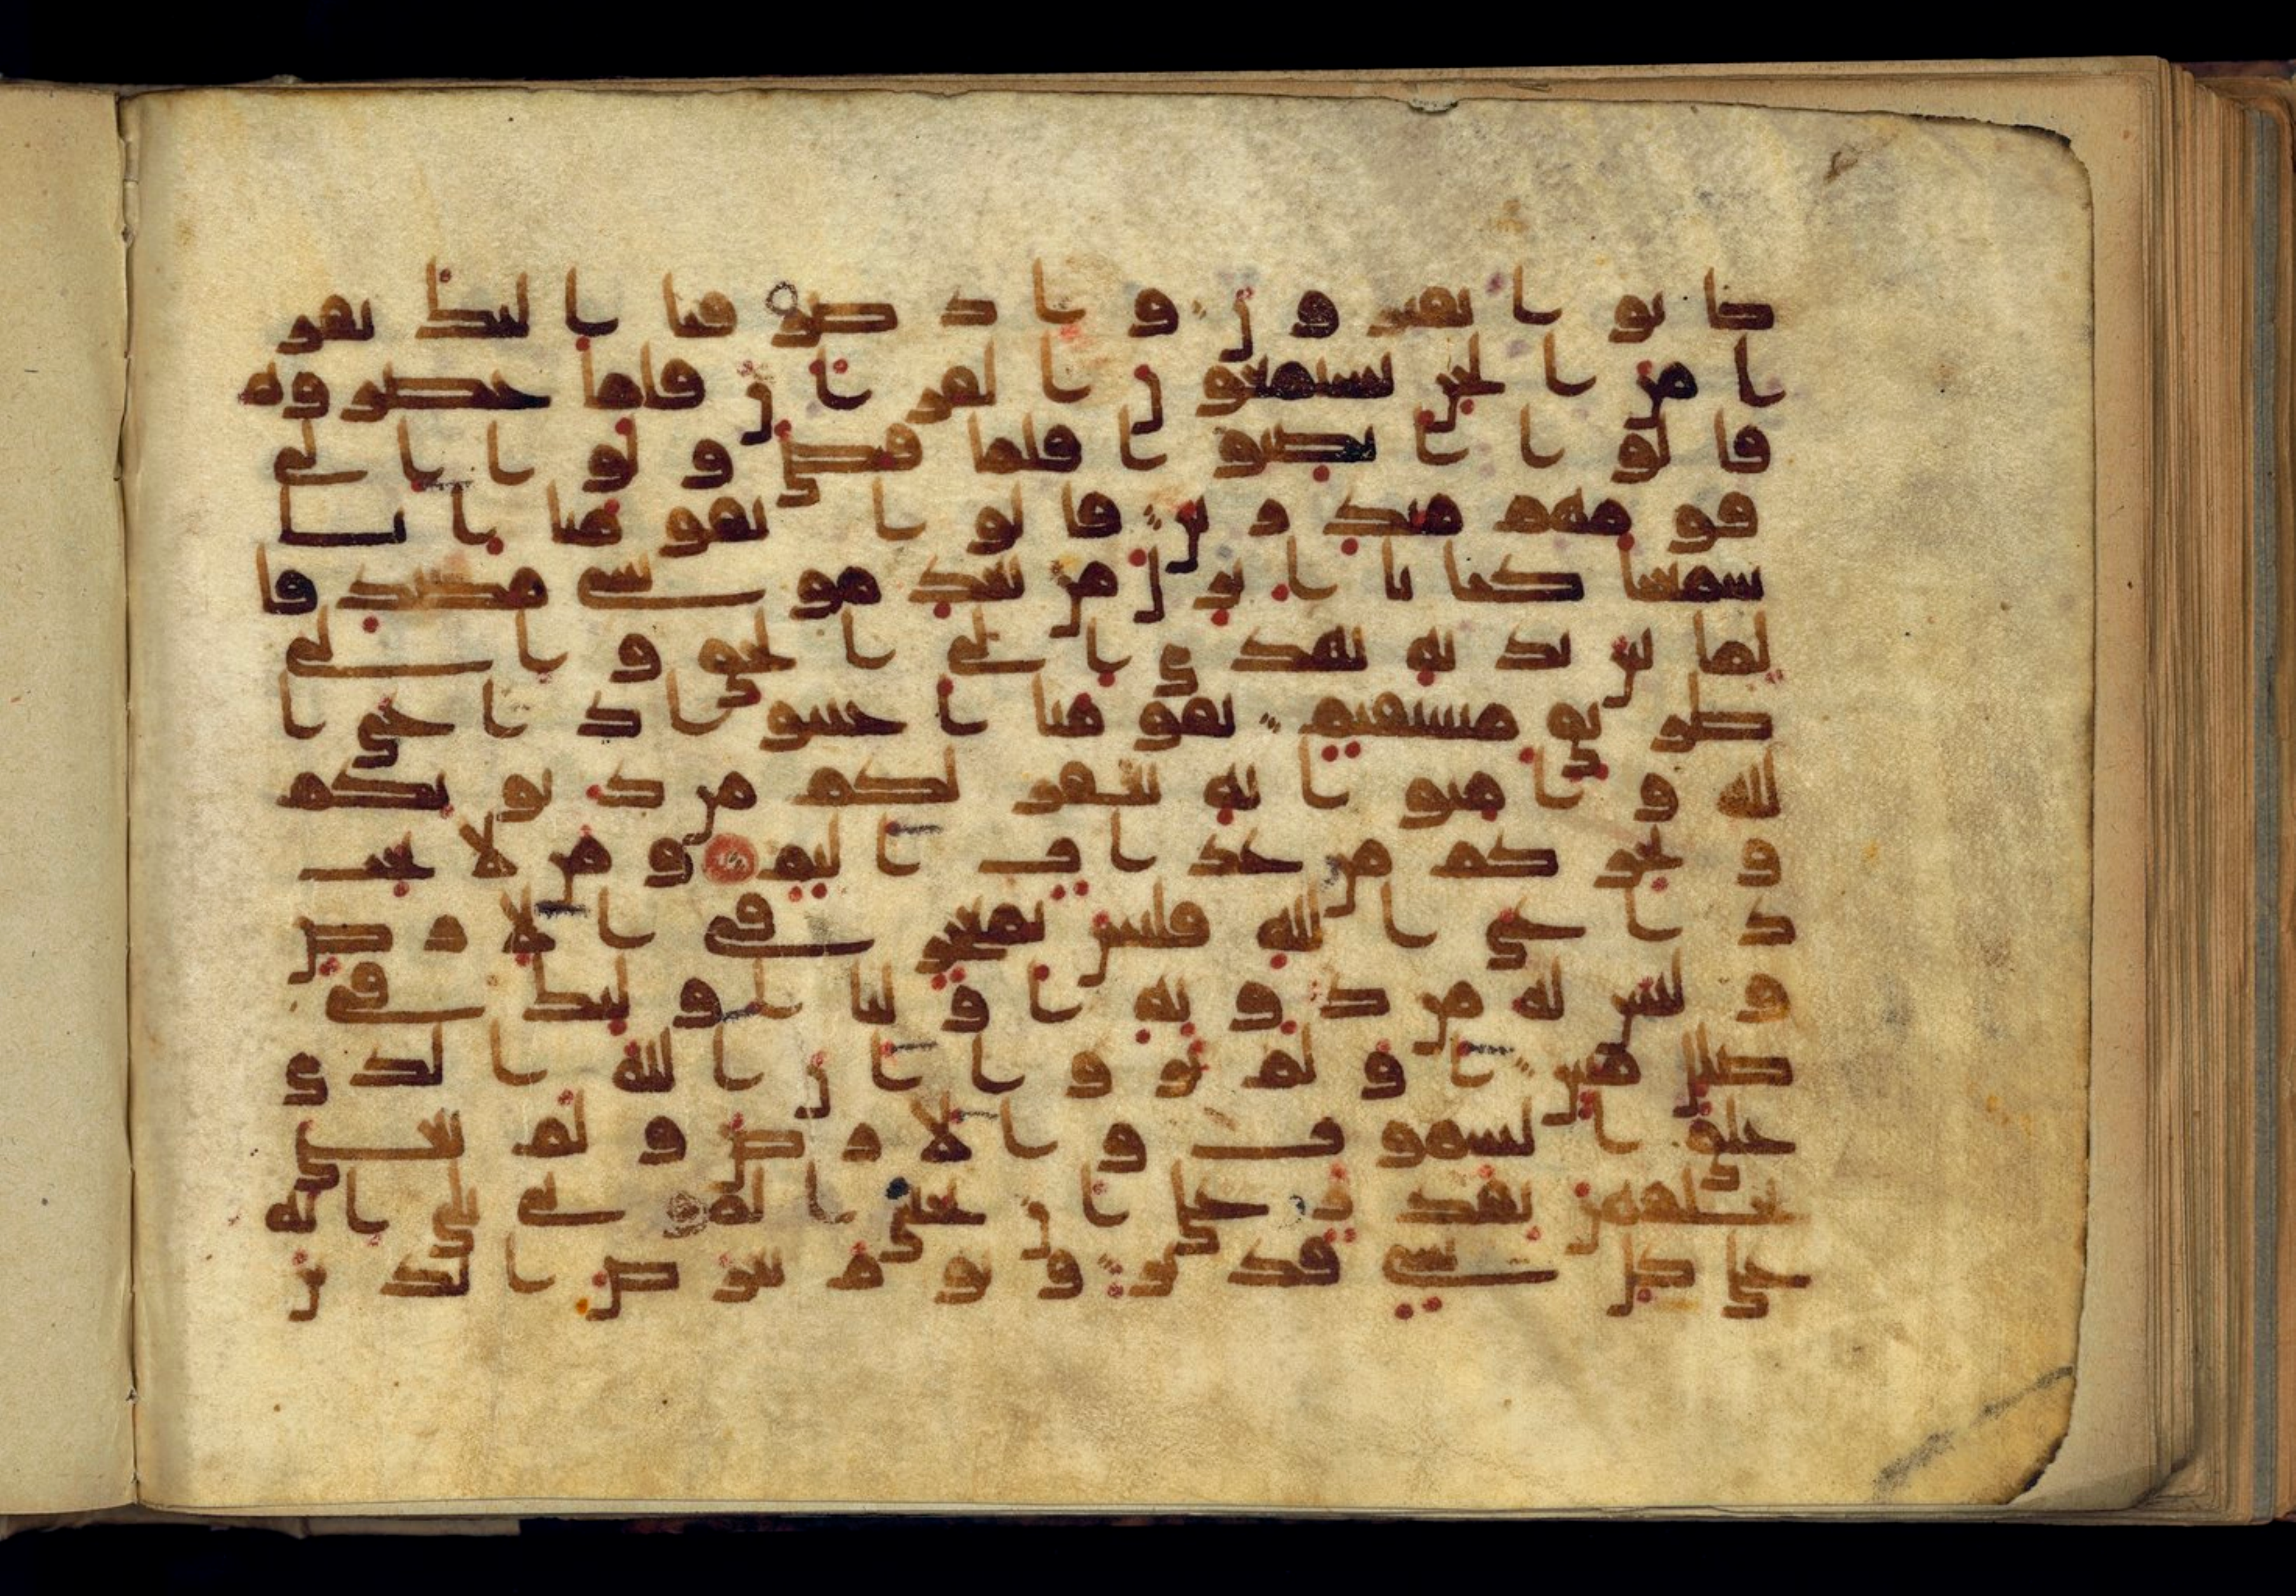 كانوا يفترون واذ صرفنا اليك نفر
ا من الجن يستمعون القران فلما حضروه
قالوا انصتوا فلما قضي ولوا الى
قومهم منذرين قالوا يقومنا انا
سمعنا كتبا انزل من بعد موسى مصدقا
لما بين يديه يهدي الى الحق والى
طريق مستقيم يقومنا اجيبوا داعي ا
لله وامنوا به يغفر لكم من ذنوبكم
ويجركم من عذاب اليم ومن لا يجب
داعي الله فليس بمعجز في الارض
وليس له من دونه اوليا اوليك في
ضلل مبين اولم يروا ان الله الذي
خلق السموت والارض ولم يعي
بخلقهن بقدر على ان يحي الموتى بلى انه
على كل شي قدير ويوم يعرض الذين